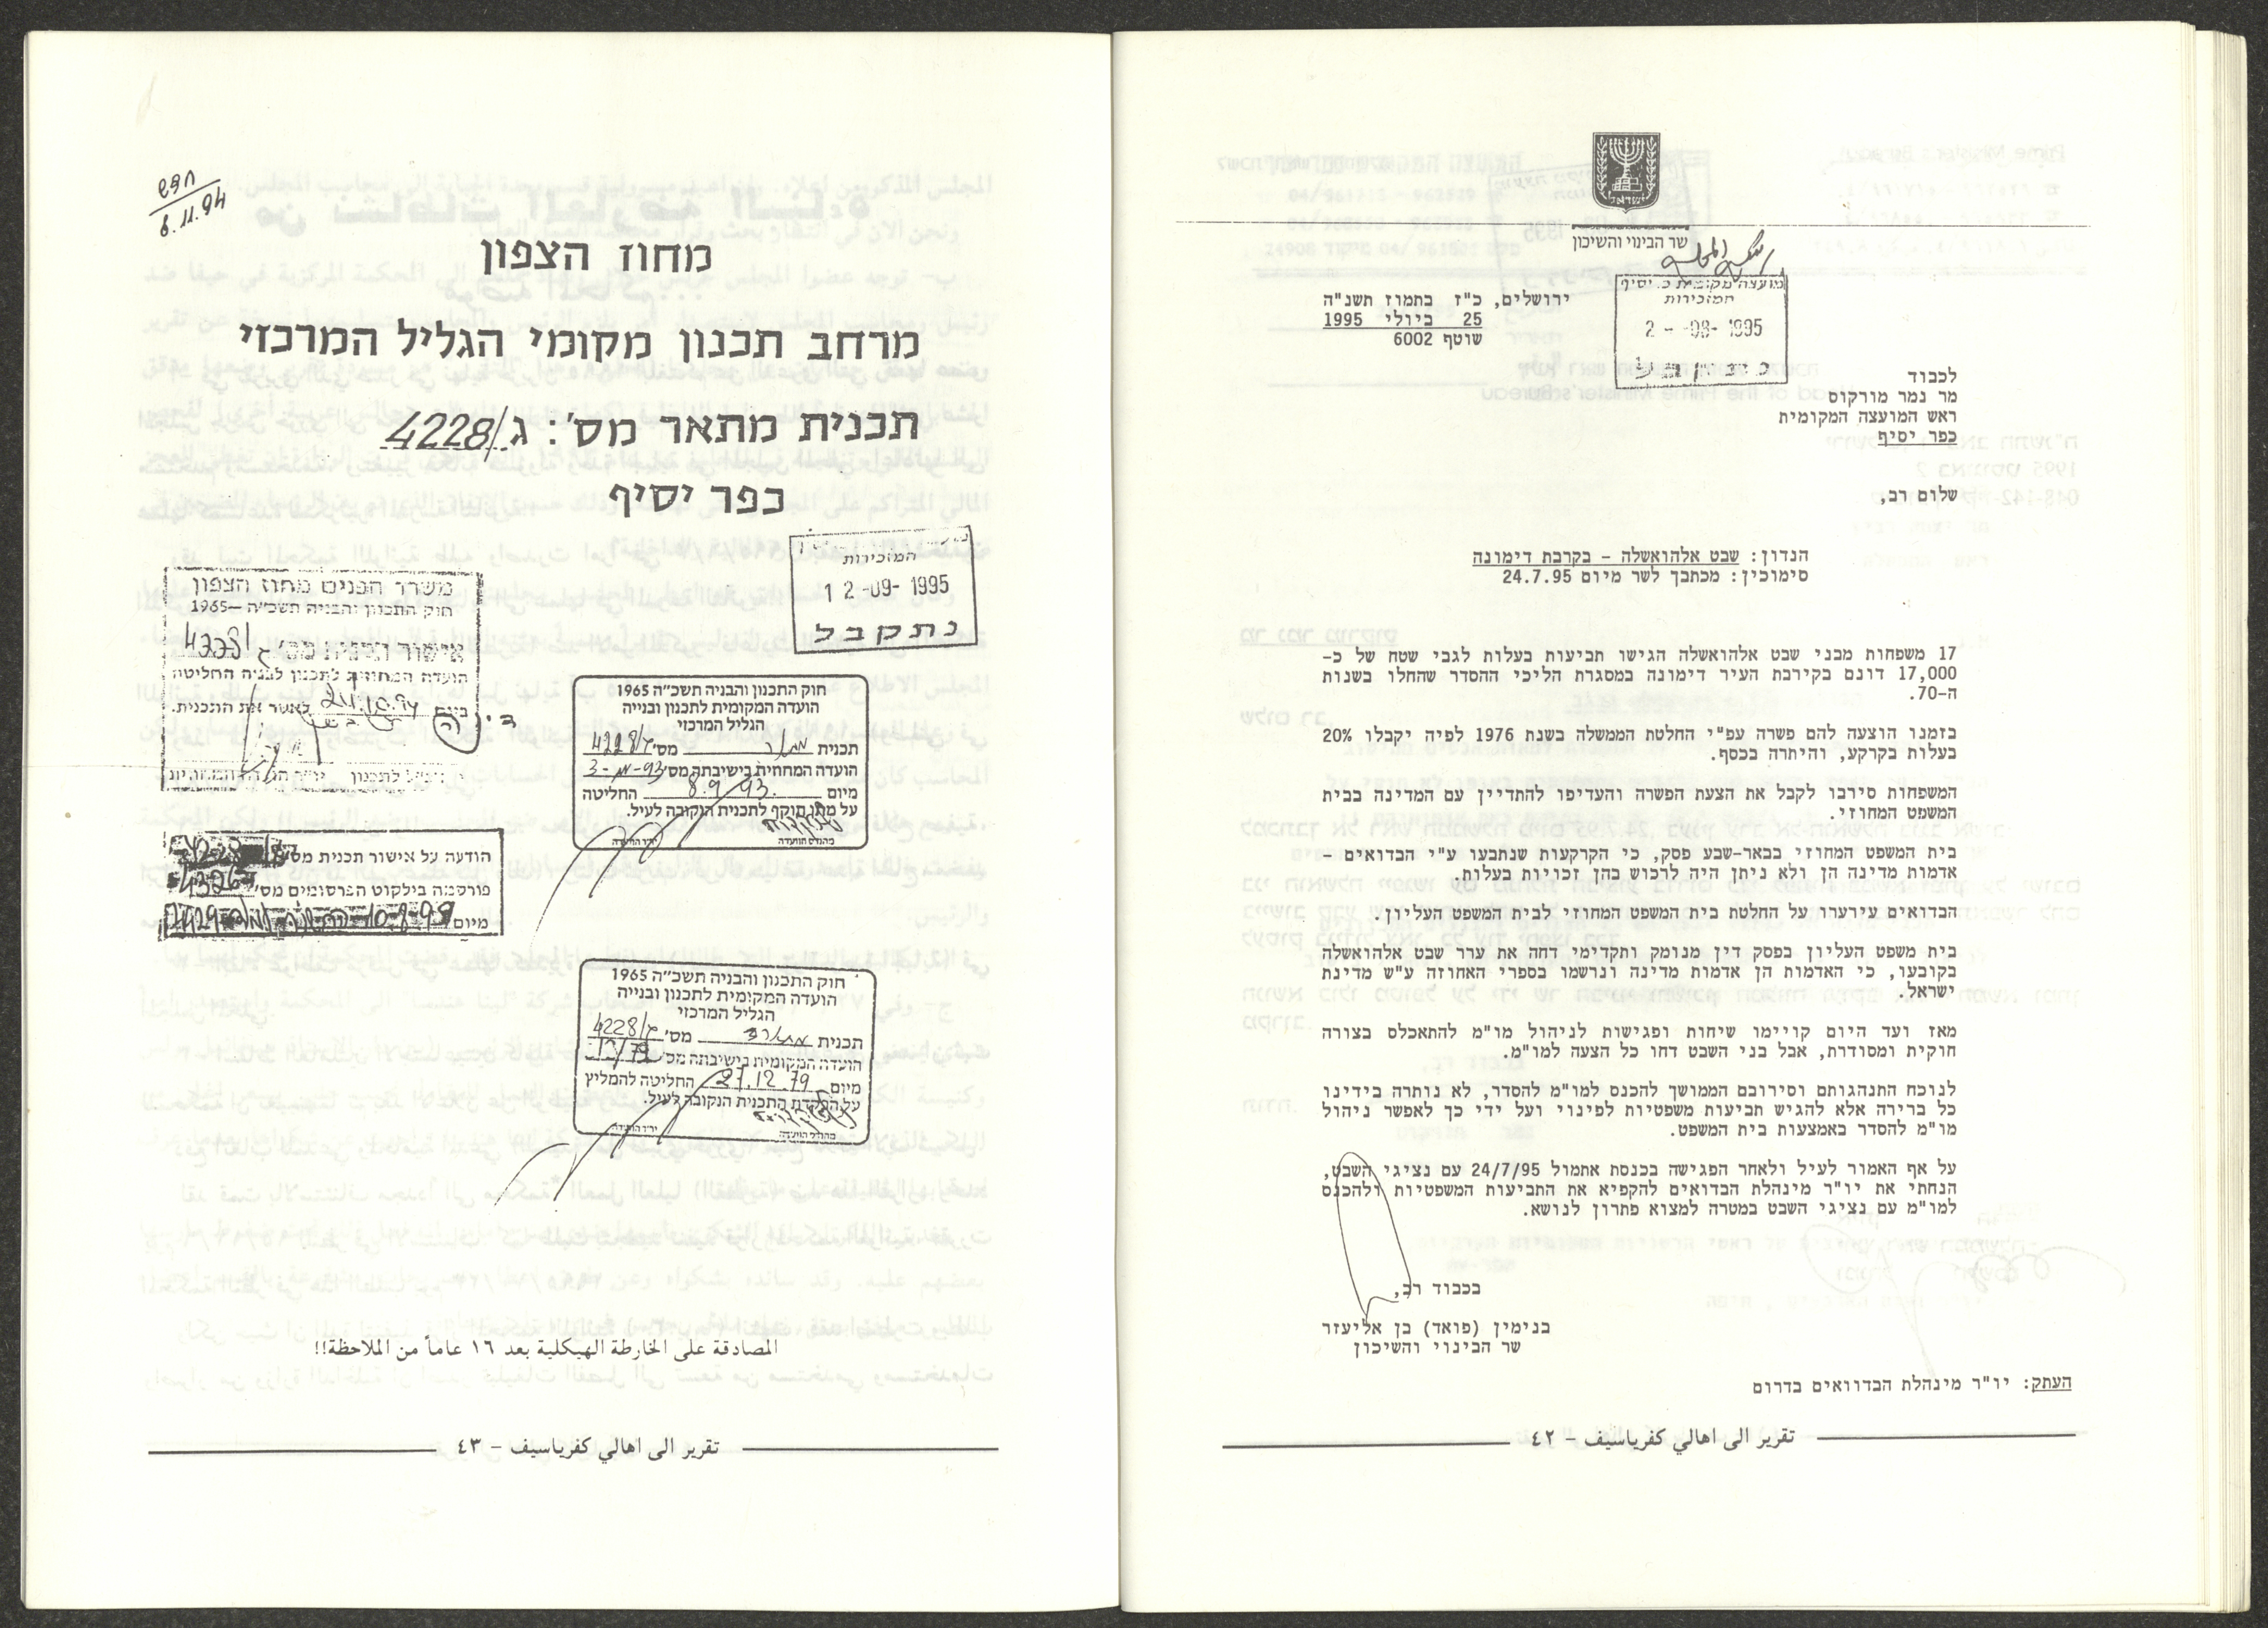 שר הבינוי והשיכון
מועצה מקומית כ. יסיף
המזכירות
2 -08- 1995
ירושלים, כ"ז בתמוז תשנ"ה
25 ביולי 1995
שוטף 6002
לכבוד
מר נמר מורקוס
ראש המועצה המקומית
כפר יסיף
שלום רב,
הנדון: שבט אלהואשלה - בקרבת דימונה
סימוכין: מכתבך לשר מיום 24.7.95
17 משפחות מבני שבט אלהואשלה הגישו תביעות בעלות לגבי שטח של כ-
17,000 דונם בקירבת העיר דימונה במסגרת הליכי ההסדר שהחלו בשנות
ה-70.
בזמנו הוצעה להם פשרה עפ"י החלטת הממשלה בשנת 1976 לפיה יקבלו 20%
בעלות בקרקע, והיתרה בכסף.
המשפחות סירבו לקבל את הצעת הפשרה והעדיפו להתדיין עם המדינה בבית
המשפט המחוזי.
בית המשפט המחוזי בבאר-שבע פסק, כי הקרקעות שנתבעו ע"י הבדואים -
אדמות מדינה הן ולא ניתן היה לרכוש בהן זכויות בעלות.
הבדואים עירערו על החלטת בית המשפט המחוזי לבית המשפט העליון.
בית משפט העליון בפסק דין מנומק ותקדימי דחה את ערר שבט אלהואשלה
בקובעו, כי האדמות הן אדמות מדינה ונרשמו בספרי האחוזה ע"ש מדינת
ישראל.
מאז ועד היום קויימו שיחות ופגישות לניהול מו"מ להתאכלס בצורה
חוקית ומסודרת, אבל בני השבט דחו כל הצעה למו"מ.
לנוכח התנהגותם וסירובם הממושך להכנס למו"מ להסדר, לא נותרה בידינו
כל ברירה אלא להגיש תביעות משפטיות לפינוי ועל ידי כך לאפשר ניהול
מו"מ להסדר באמצעות בית המשפט.
על אף האמור לעיל ולאחר הפגישה בכנסת אתמול 24/7/95 עם נציגי השבט,
הנחתי את יו"ר מינהלת הבדואים להקפיא את התביעות המשפטיות ולהכנס
למו"מ עם נציגי השבט במטרה למצוא פתרון לנושא.
בכבוד רב,
בנימין (פואד) בן אליעזר
שר הבינוי והשיכון
העתק: יו"ר מינהלת הבדוואים בדרום
تقرير الى اهالي كفرياسيف - ٤٢
חדש
6.11.94
מחוז הצפון
מרחב תכנון מקומי הגליל המרכזי
תכנית מתאר מס': ג/4228
כפר יסיף
המזכירות
12-09-1995
נתקבל
משרד הפנים מחוז הצפון
חוק התכנון והבניה תשכ"ה-1965
אישור תכנית מס' ג
הועדה המחוזית לתכנון לבניה החליטה
ביום לאשר את התכנית.
חוק התכנון והבניה תשכ"ה 1965
הועדה המקומית לתכנון ובנייה
הגליל המרכזי
תכנית מתאר מס' ג/4228
הועדה המחוזית בישיבתה מס'
מיום 8.9.93 החליטה
על מתן תוקף לתכנית הנקובה לעיל.
מהנדס הועדה יו"ר הועדה
הודעה על אישור תכנית מס'
פורסמה בילקוט הפרסומים מס'
מיום
חוק התכנון והבניה תשכ"ה 1965
הועדה המקומית לתכנון ובנייה
הגליל המרכזי
תכנית מתאר מס' ג/4228
הועדה המקומית בישיבתה מס'
מיום 27.12.79 החליטה להמליץ
על הפקדת התכנית הנקובה לעיל.
מהנדס הועדה יו"ר הועדה
المصادقة على الخارطة الهيكلية بعد ١٦ عاماً من الملاحظة!!
تقرير الى اهالي كفرياسيف - ٤٣